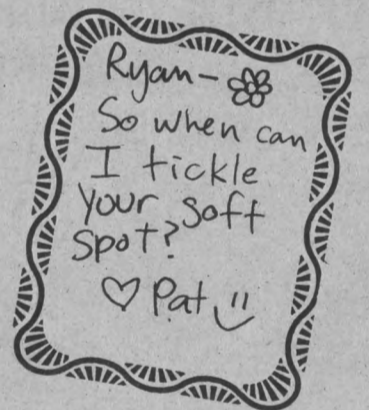 Ryan–
So when can
I tickle
your soft
spot?
♡ Pat